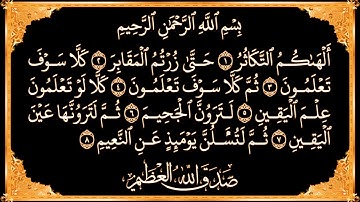 بِسْمِ اللَّهِ الرَّحْمَٰنِ الرَّحِيمِ
أَلْهَىٰكُمُ التَّكَاثُرُ ١ حَتَّىٰ زُرْتُمُ الْمَقَابِرَ ٢ كَلَّا سَوْفَ
تَعْلَمُونَ ٣ ثُمَّ كَلَّا سَوْفَ تَعْلَمُونَ ٤ كَلَّا لَوْ تَعْلَمُونَ
عِلْمَ الْيَقِينِ ٥ لَتَرَوُنَّ الْجَحِيمَ ٦ ثُمَّ لَتَرَوُنَّهَا عَيْنَ
الْيَقِينِ ٧ ثُمَّ لَتُسْـَٔلُنَّ يَوْمَئِذٍ عَنِ النَّعِيمِ ٨
صَدَقَ اللَّهُ الْعَظِيمُ